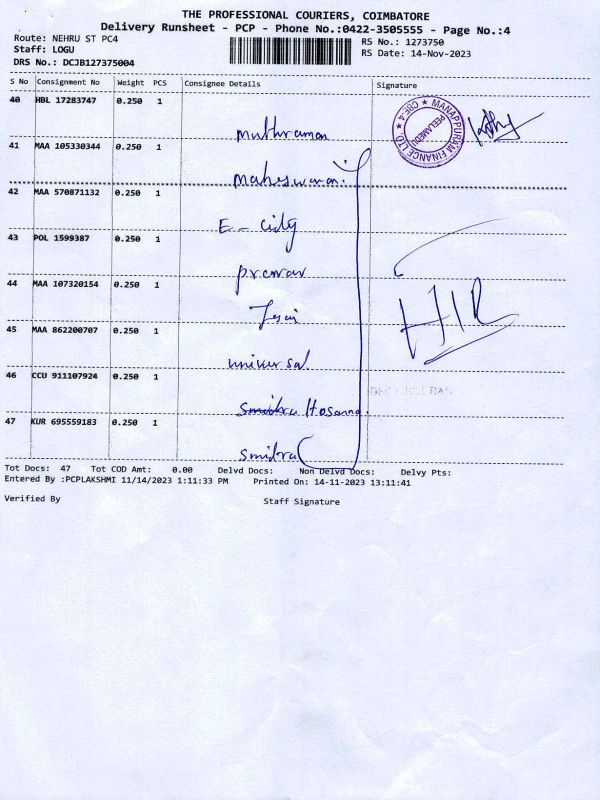 THE PROFESSIONAL COURIERS, COIMBATORE
Delivery Runsheet - PCP - Phone No.:0422-3505555 - Page No.:4
Route: NEHRU ST PC4
RS No.: 1273750
Staff: LOGU
RS Date: 14-Nov-2023
DRS No.: DCJB127375004
S No Consignment No Weight PCS Consignee Details Signature
40 HBL 17283747 0.250 1
muthraman
MANAPPURAM FINANCE LTD
PEELAMEDU
CBE-4
41 MAA 105330344 0.250 1
maheswaran.
42 MAA 570871132 0.250 1
E-city
43 POL 1599387 0.250 1
44 MAA 107320154 0.250 1
HIR
45 MAA 862200707 0.250 1
universal
46 CCU 911107924 0.250 1
Hosanna.
47 KUR 695559183 0.250 1
smidra
Tot Docs: 47 Tot COD Amt: 0.00 Delvd Docs: Non Delvd Docs: Delvy Pts:
Entered By :PCPLAKSHMI 11/14/2023 1:11:33 PM Printed On: 14-11-2023 13:11:41
Verified By Staff Signature